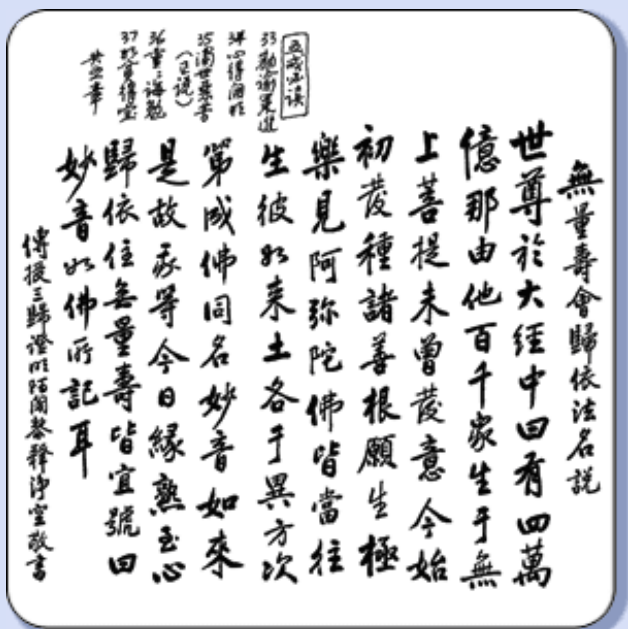 無量壽會歸依法名説
世尊於大經中曰有四萬
億那由他百千眾生于無
上菩提未曾發意今始
初發種諸善根願生極
樂見阿弥陀佛皆當往
生彼如来土各于異方次
第成佛同名妙音如來
是故我等今日緣熟至心
歸依住無量壽皆宜號曰
妙音如佛所記耳
傳授三歸證明阿闍黎釋淨空敬書
五戒必读
33勸諭策進
34心得開明
35濁世惡苦
(已説)
36重重誨勉
37如貧得寶
共五章